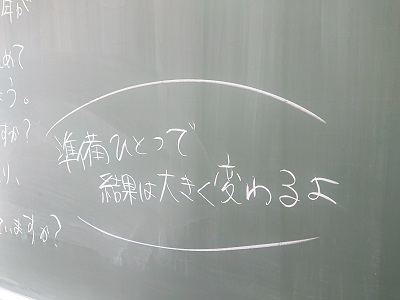 耳が
めて
う。
すか?
り、
いますか?
準備ひとつで
結果は大きく変わるよ